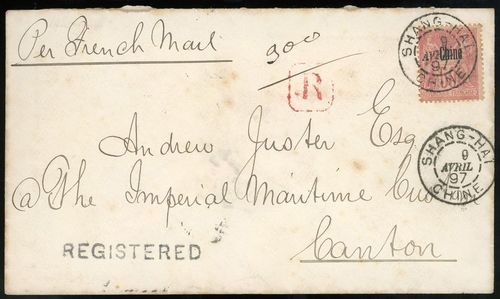 Per French Mail
900
SHANG-HAI
9
AVRIL
97
CHINE
China
R
Andrew Juster Esq
@ The Imperial Maritime Cus
Canton
SHANG-HAI
9
AVRIL
97
CHINE
REGISTERED